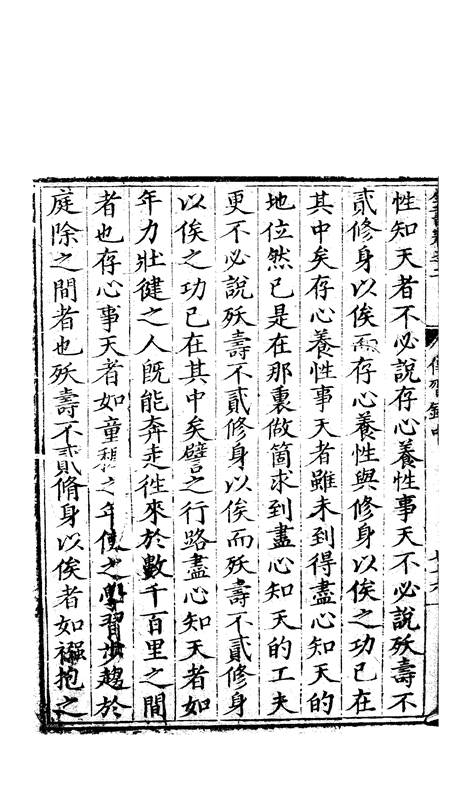 全書卷之二 傳習錄中
性知天者不必說存心養性事天不必說殀壽不
貳修身以俟而存心養性與修身以俟之功已在
其中矣存心養性事天者雖未到得盡心知天的
地位然已是在那裏做箇求到盡心知天的工夫
更不必說殀壽不貳修身以俟而殀壽不貳修身
以俟之功已在其中矣譬之行路盡心知天者如
年力壯健之人既能奔走徃來於數千百里之間
者也存心事天者如童穉之年使之學習步趨於
庭除之間者也殀壽不貳脩身以俟者如襁抱之